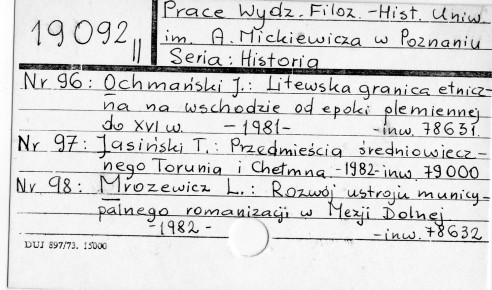 19092 II
Prace Wydz. Filoz.-Hist. Uniw.
im. A. Mickiewicza w Poznaniu
Seria: Historia
Nr 96: Ochmański J.: Litewska granica etnicz-
na na wschodzie od epoki plemiennej
do XVI w. -1981- -inw. 78631.
Nr 97: Jasiński T.: Przedmieścia średniowiecz-
nego Torunia i Chełmna -1982-inw. 79000
Nr 98: Mrozewicz L.: Rozwój ustroju municy-
palnego romanizacji w Mezji Dolnej
-1982- -inw. 78632
DUJ 897/73. 15000